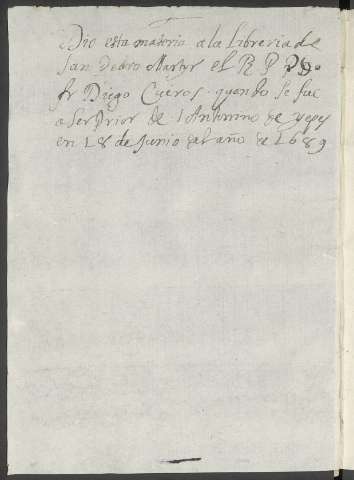 Dio esta materia a la Libreria de
San Pedro Martyr el R P
fr Diego Cueros quando se fue
a Ser Prior de S Antonino de yepes
en 18 de Junio del año de 1689